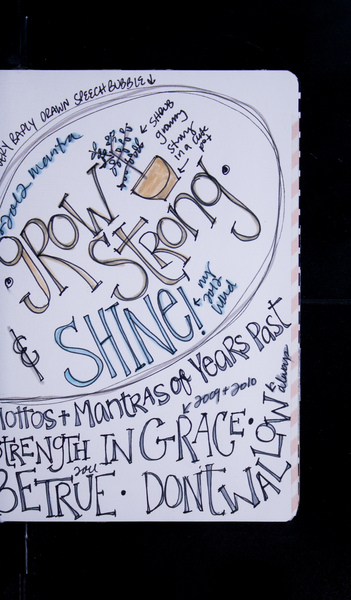 VERY BADLY DRAWN SPEECH BUBBLE ↓
2012 mantra
← SHRUB
growing
strong
in a cute
pot
• GROW
STRONG •
& SHINE!
← my
2012
word
Mottos + MANTRAS OF YEARS PAST
2009 + 2010
always
STRENGTH IN GRACE •
you
BE TRUE • DON'T WALLOW